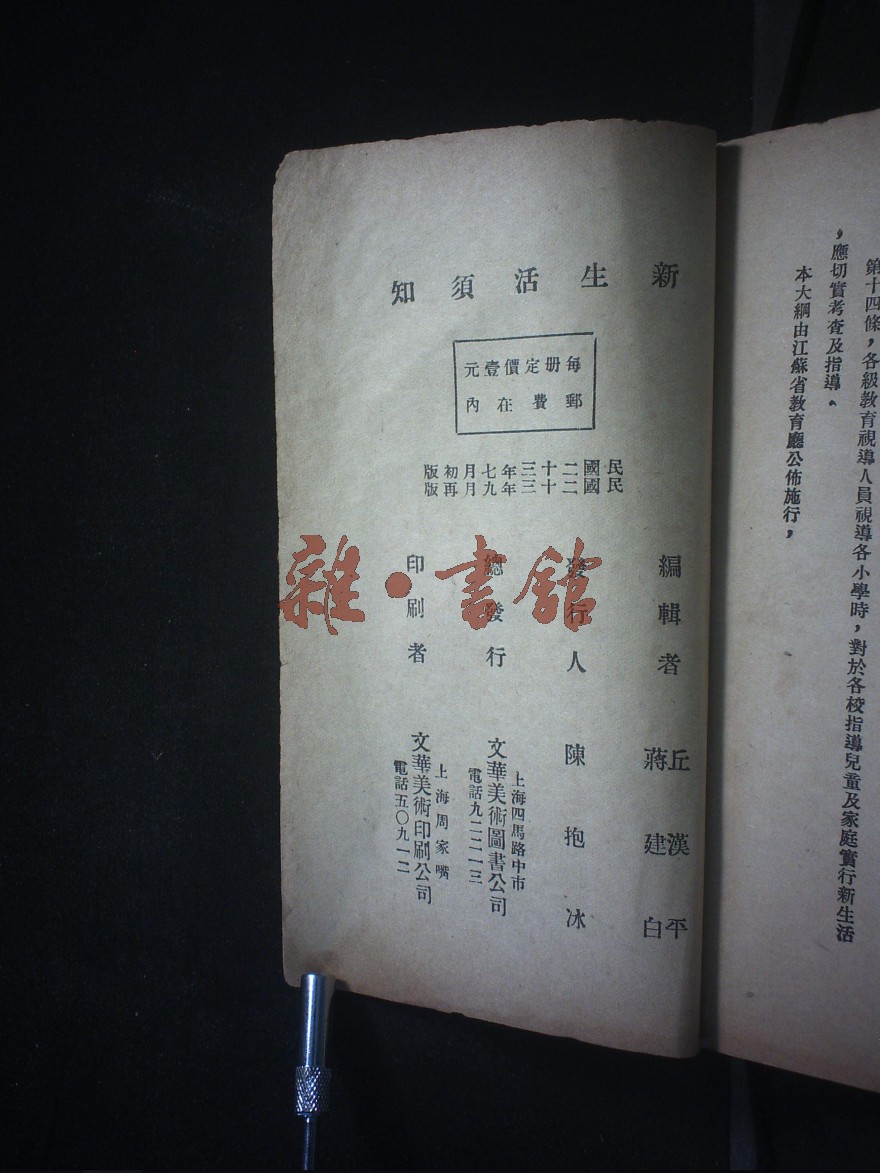 第十四條,各級教育視導人員視導各小學時,對於各校指導兒童及家庭實行新生活
,應切實考查及指導。
本大綱由江蘇省教育廳公佈施行,
新生活須知
每册定價壹元
郵費在內
民國二十三年七月初版
民國二十三年九月再版
編輯者 丘漢平
蔣建白
發行人 陳抱冰
總發行 文華美術圖書公司
上海四馬路中市
電話九二二一三
印刷者 文華美術印刷公司
上海周家嘴
電話五〇九一二
雜·書館